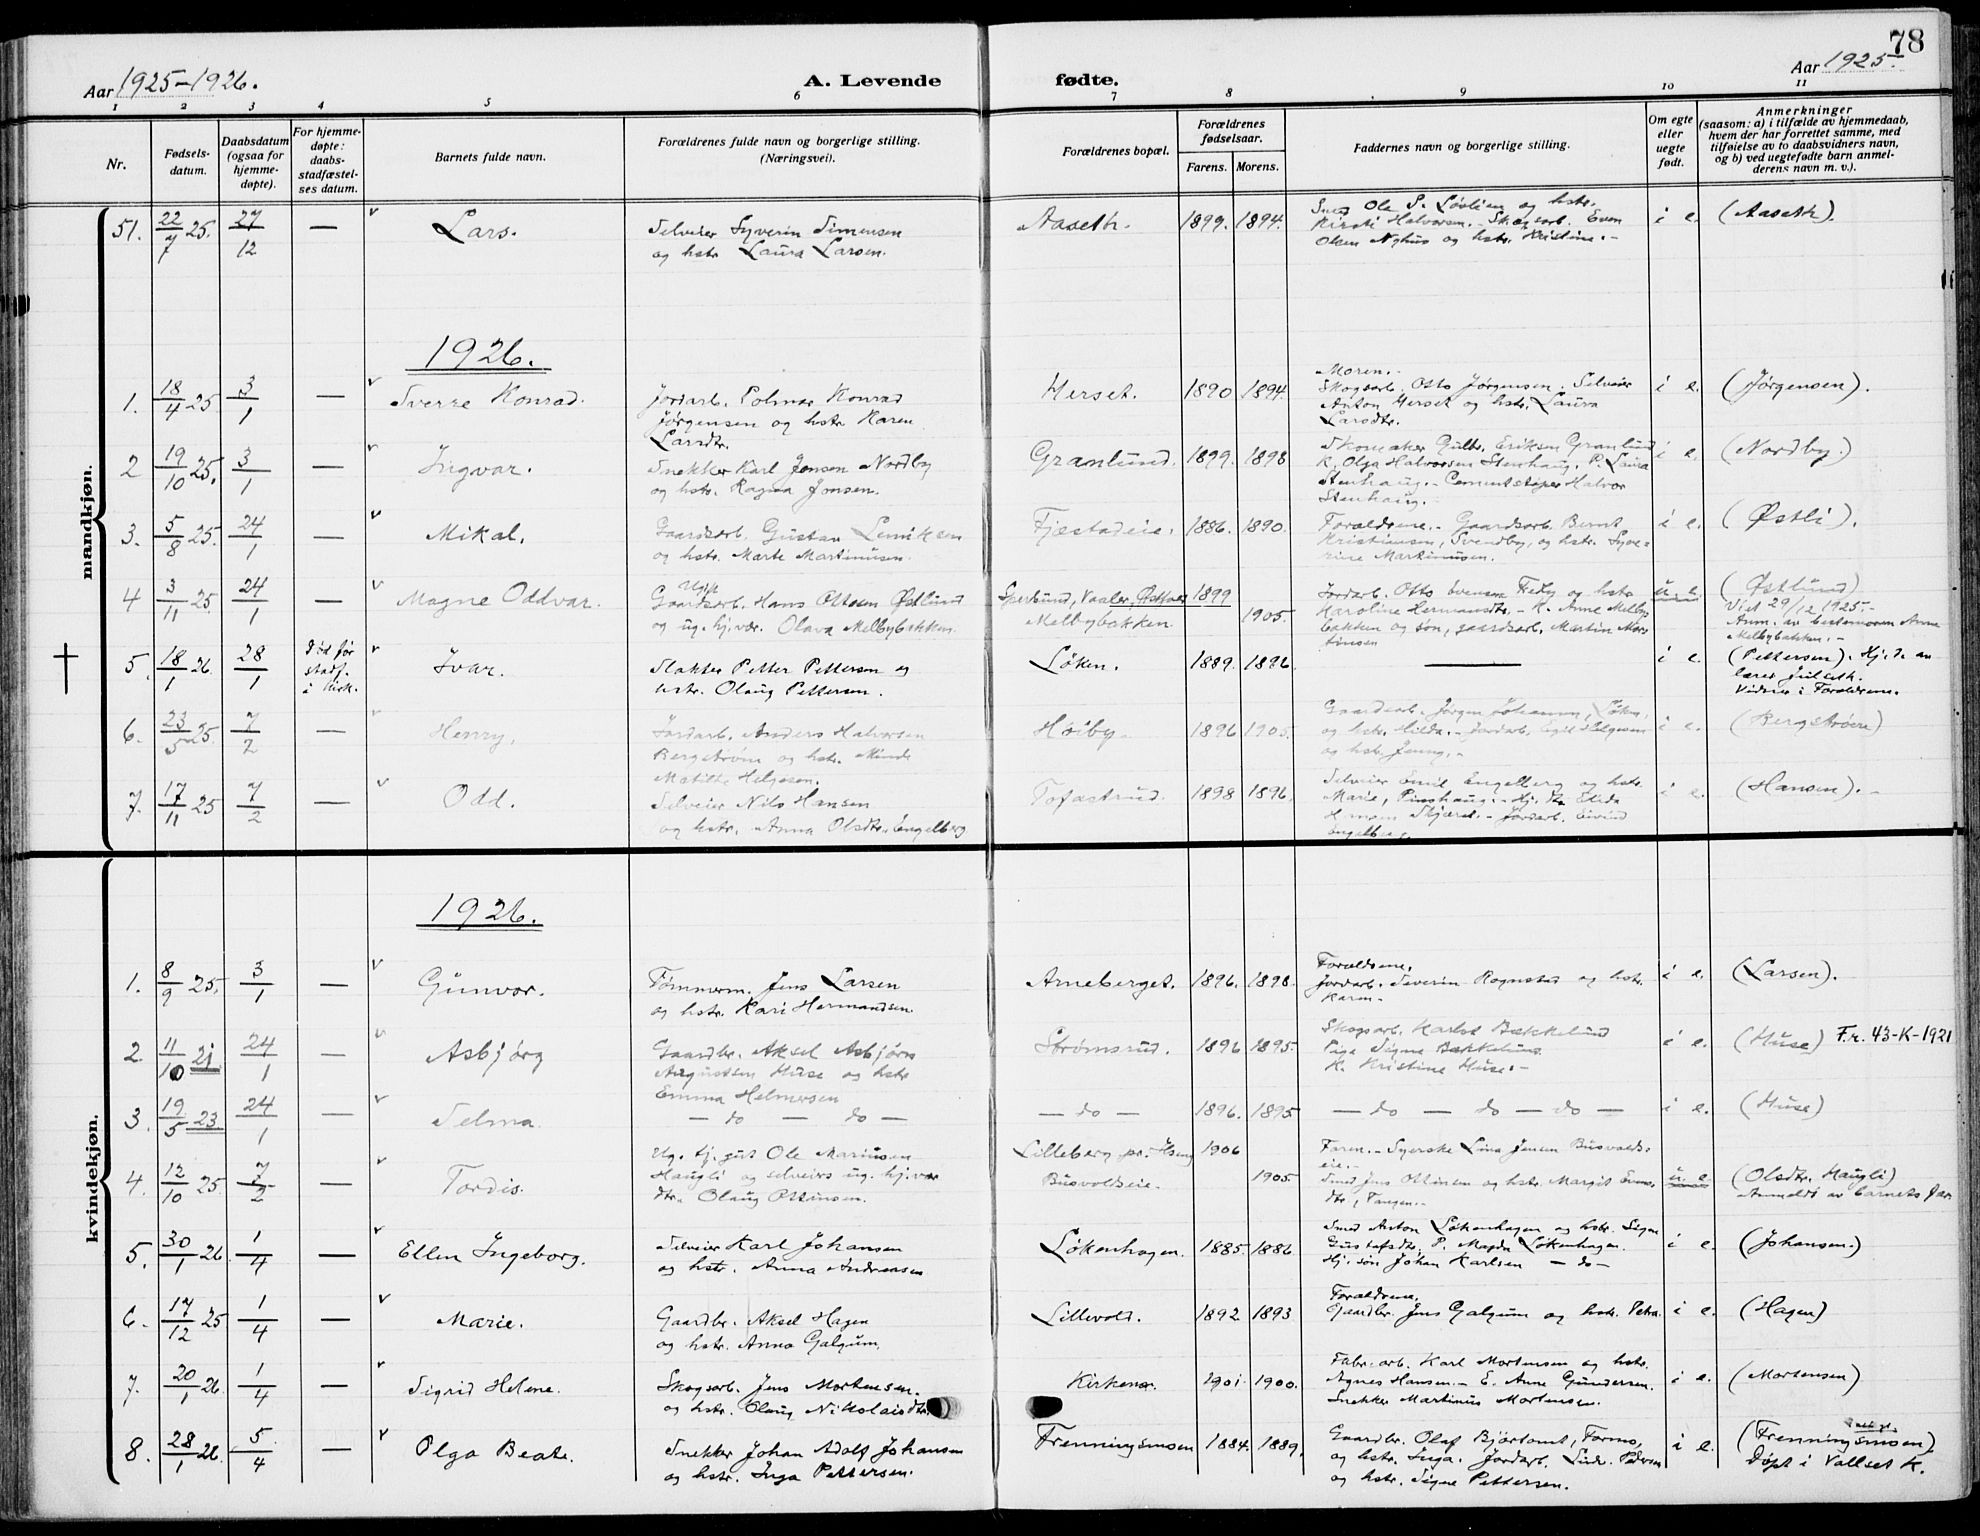 78
Aar 1925-1926.
A. Levende fødte.
Aar 1925.
1 2 3 4 5 6 7 8 9 10 11
Nr.
Fødsels-
datum.
Daabsdatum
(ogsaa for
hjemme-
døpte).
For hjemme-
døpte:
daabs-
stadfæstel-
ses datum.
Barnets fulde navn.
Forældrenes fulde navn og borgerlige stilling.
(Næringsvei).
Forældrenes bopæl.
Forældrenes
fødselsaar.
Farens. Morens.
Faddernes navn og borgerlige stilling.
Om egte
eller
uegte
født.
Anmerkninger
(saasom: a) i tilfælde av hjemmedaab,
hvem der har forrettet samme, med
tilføielse av to daabsvidners navn,
og b) ved uegtefødte barn anmel-
derens navn m. v.).
mandkjøn.
51. 22/7 25. 27/12 — Lars. Selveier Syverin Simensen
og hstr. Laura Larsen.
Aaseth. 1899. 1894. Ole P. Løvlien og hstr.
Kirsti Halvorsen. - Skogsarb. Even
Olsen Nyhus og hstr. Kristine. -
i e. (Aaseth).
1926.
1. 18/4 25 3/1 — Sverre Konrad. Jordarb. Konrad
Jørgensen og hstr. Karen
Larsdtr.
Herset. 1890 1894. Moren. -
Skogsarb. Otto Jørgensen. Selveier
Anton Herset og hstr. Laura
Larsdtr.
i e. (Jørgensen).
2 19/10 25. 3/1 — Ingvar. Snekker Karl Jensen Nordby
og hstr. Ragna Jonsen.
Granlund. 1899. 1898 Skomaker Gulbr. Eriksen Granlund
K. Olga Halvorsen Stenhaug. P. Laura
Stenhaug. - Cementstøper Halvor
Stenhaug. -
i e. (Nordby.)
3. 5/8 25. 24/1 — Mikal. Gaardsarb. Gustav
og hstr. Marte Martinusen.
Fjæstadeie. 1886. 1890. Forældrene. - Gaardsarb. Bernt
Kristiansen, Svendby, og hstr. Syve-
rine Martinusen.
i e. (Østli).
4 3/11 25 24/1 — Magne Oddvar. Ugift
Gaardsarb. Hans Ottosen Østlund
og ug. hj.vær. Olava Melbybakken.
Vaaler, 1899
Melbybakken. 1905. Jordarb. Otto Svensen og hstr
Karoline Hermansdtr. - K. Anne Melby
bakken og søn, gaardsarb. Martin Mar-
tinsen
u. e. (Østlund)
29/12 1925. -
Anm. av bestemoren Anne
Melbybakken. -
5. 18/1 26. 28/1 Død før
stadf.
i kirk.
Ivar. Slakter Petter Pettersen og
hstr. Olaug Pettersen.
Løken. 1889. 1896. — i e. (Pettersen). Hj. d. av
lærer Julseth.
Vidner: Forældrene.
6. 23/5 25. 7/2 — Henry. Jordarb. Anders Halvorsen
Bergstrøm og hstr.
Matilde Helgesen.
Høiby. 1896 1905. Gaardsarb. Jørgen Johannsen, Løken,
og hstr. Hilda. - Jordarb. Egil Helgesen
og hstr. Jenny. -
i e.
7. 17/11 25 7/2 — Odd. Selveier Nils Hansen
og hstr. Anna Olsdtr. Engelberg
Tofastrud. 1898 1896. Selveier Emil Engelberg og hstr.
Marie,
Hansen - Jordarb. Eivind
Engelberg.
i e. (Hansen). -
kvindekjøn.
1926.
1. 8/9 25. 3/1 — Gunvor. Tømmerm. Jens Larsen
og hstr. Kari Hermandsen.
Arneberget. 1896. 1898. Forældrene.
Jordarb. Severin Rognstad og hstr.
Karen -
i e. (Larsen).
2 11/10 21 24/1 — Asbjørg Gaardbr. Aksel Asbjørn
Augustsen Huse og hstr
Emma Helmersen
Strømsrud. 1896 1895. Skogsarb. Bækkelund
Pige Signe Bækkelund
K. Kristine Huse. -
i e. (Huse) Fr. 43-K-1921
3. 19/5 23 24/1 — Selma — do — do — — do — 1896. 1895 — do — do — do — i e. (Huse)
4. 12/10 25. 7/2 — Tordis. Ug. tj. gut Ole Mariusen
Haugli og selveiers ug. hj.vær
dtr. Olaug Ottinsen.
Lilleberg 1906
Busvoldseie. 1905. Faren. - Syerske Lina Jensen Busvolds-
eie. -
Smed Jens Ottinsen og hstr. Margit
dtr, Tangen. -
u. e. (Olsdtr. Haugli)
Anmeldt av barnets far
5. 30/1 26. 1/4 — Ellen Ingeborg. Selveier Karl Johansen
og hstr. Anna Andreasen
Løkenhagen. 1885. 1886 Smed Anton Løkenhagen og hstr. Signe
Gustafsdtr. P. Magda Løkenhagen.
Hj. søn Johan Karlsen — do —
i e. (Johansen.)
6. 17/12 25 1/4 — Marie. Gaardbr. Aksel Hagen
og hstr. Anna Galgum.
Lillevold. 1892 1893 Forældrene.
Gaardbr. Jens Galgum og hstr. Petra.
i e. (Hagen)
7. 20/1 26. 1/4 — Sigrid Helene. Skogsarb. Jens Mortensen.
og hstr. Olaug Nikolaisdtr.
Kirkenær. 1901. 1900. Fabr. arb. Karl Mortensen og hstr.
Agnes Hansen. - E. Anne Gundersen.
Snekker Martinus Mortensen.
i e. (Mortensen)
8. 28/1 26. 5/4 — Olga Beate. Snekker Johan Adolf Johansen
og hstr. Inga Pettersen.
Frenningsmoen 1884. 1889. Gaardbr. Olaf
og hstr. Inga. Jordarb. Pedersen
og hstr. Signe Pettersen.
i e. (Frenningsmoen)
Døpt i Vallset K.